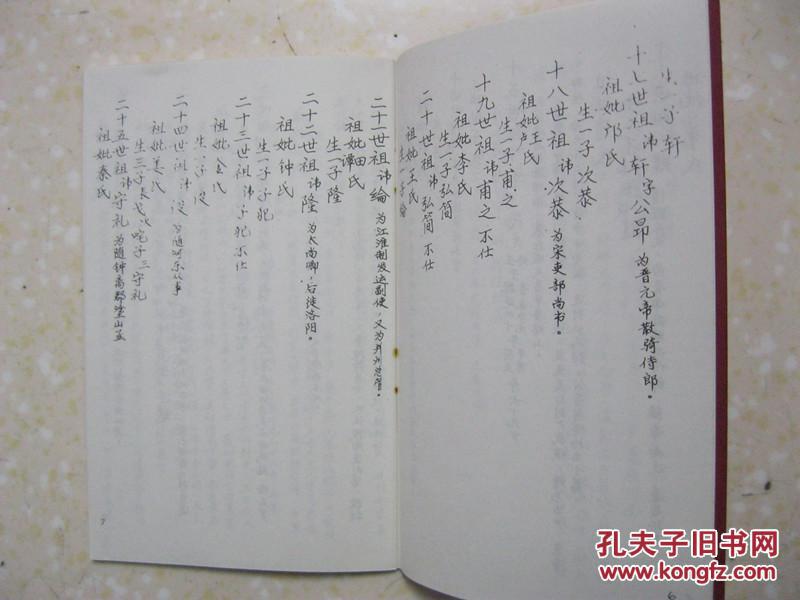 生一子轩
十七世祖讳轩字公昂为晋元帝散骑侍郎。
祖妣邝氏
生一子次恭
十八世祖讳次恭为宋吏部尚书。
祖妣王氏
卢氏
生一子甫之
十九世祖讳甫之不仕
祖妣李氏
生一子弘简
二十世祖讳弘简不仕
祖妣王氏
生一子纶
6
二十一世祖讳纶为江淮制发运副使，又为并州总管。
祖妣田氏
谭氏
生一子隆
二十二世祖讳隆为太常卿，后徙洛阳。
祖妣钟氏
生一子子犯
二十三世祖讳子犯不仕
祖妣金氏
生一子
二十四世祖讳
祖妣姜氏
生三子长 次 子三守礼
二十五世祖讳守礼为随钟离郡涂山孟
祖妣秦氏
7
孔夫子旧书网
www.kongfz.com